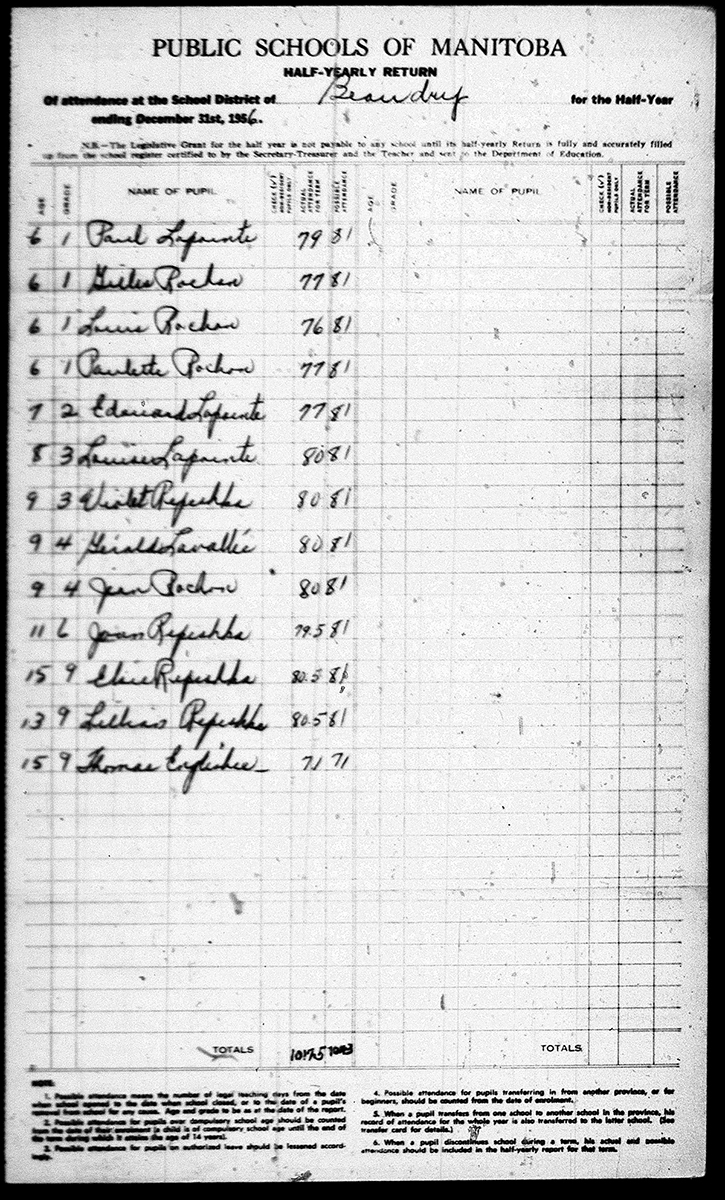 PUBLIC SCHOOLS OF MANITOBA
HALF-YEARLY RETURN
Of attendance at the School District of Beaudry for the Half-Year
ending December 31st, 1956.
N.B.—The Legislative Grant for the half year is not payable to any school until its half-yearly Return is fully and accurately filled
up from the school register certified to by the Secretary-Treasurer and the Teacher and sent to the Department of Education.
AGE GRADE NAME OF PUPIL CHECK (√) NON-RESIDENT PUPILS ONLY ACTUAL ATTENDANCE FOR TERM POSSIBLE ATTENDANCE AGE GRADE NAME OF PUPIL CHECK (√) NON-RESIDENT PUPILS ONLY ACTUAL ATTENDANCE FOR TERM POSSIBLE ATTENDANCE
6 1 Paul Lapointe 79 81
6 1 Gilles Rochon 77 81
6 1 Louis Rochon 76 81
6 1 Paulette Rochon 77 81
7 2 Edouard Lapointe 77 81
8 3 Louise Lapointe 80 81
9 3 Violet Repushka 80 81
9 4 Gérald Lavallée 80 81
9 4 Jean Rochon 80 81
11 6 Joan Repushka 79.5 81
15 9 Elsie Repushka 80.5 81
13 9 Lillian Repushka 80.5 81
15 9 Thomas 71 71
TOTALS 1017.5 1043 TOTALS
NOTE:
1. Possible attendance means the number of legal teaching days from the date
when school opened to the date when school closed, or to the date of a pupil's
removal from school for any cause. Age and grade to be as at the date of the report.
2. Possible attendance for pupils over compulsory school age should be counted
from the date of their enrolment (a child is of compulsory school age until the end of
the term during which it attains the age of 14 years).
3. Possible attendance for pupils on authorized leave should be lessened accord-
ingly.
4. Possible attendance for pupils transferring in from another province, or for
beginners, should be counted from the date of enrolment.
5. When a pupil transfers from one school to another school in the province, his
record of attendance for the whole year is also transferred to the latter school. (See
transfer card for details.)
6. When a pupil discontinues school during a term, his actual and possible
attendance should be included in the half-yearly report for that term.